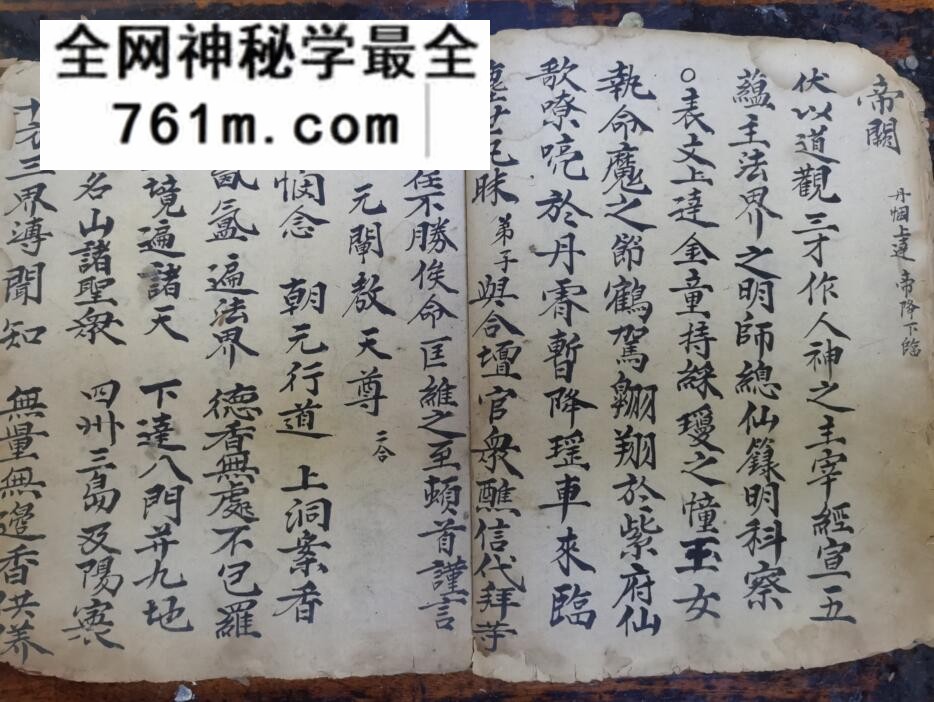 全网神秘学最全
761m.com
帝闕
丹悃上達 帝降下臨
伏以道觀三才作人神之主宰經宣五
蘊主法界之明師總仙籙明科察
○表文上達金童持綵瓊之幢玉女
執命魔之節鶴駕翱翔於紫府仙
歌嘹喨於丹霄暫降瑶車來臨
塵世 昧 弟子與合壇官衆醮信代拜等
不勝俟命匡維之至頓首謹言
元闡教天尊 二合
憫念 朝元行道 上洞案香
氤氳 遍法界 德香無處不包羅
境遍諸天 下達八門并九地
名山諸聖衆 四州三島及陽寰
十方三界溥聞知 無量無邊香供养